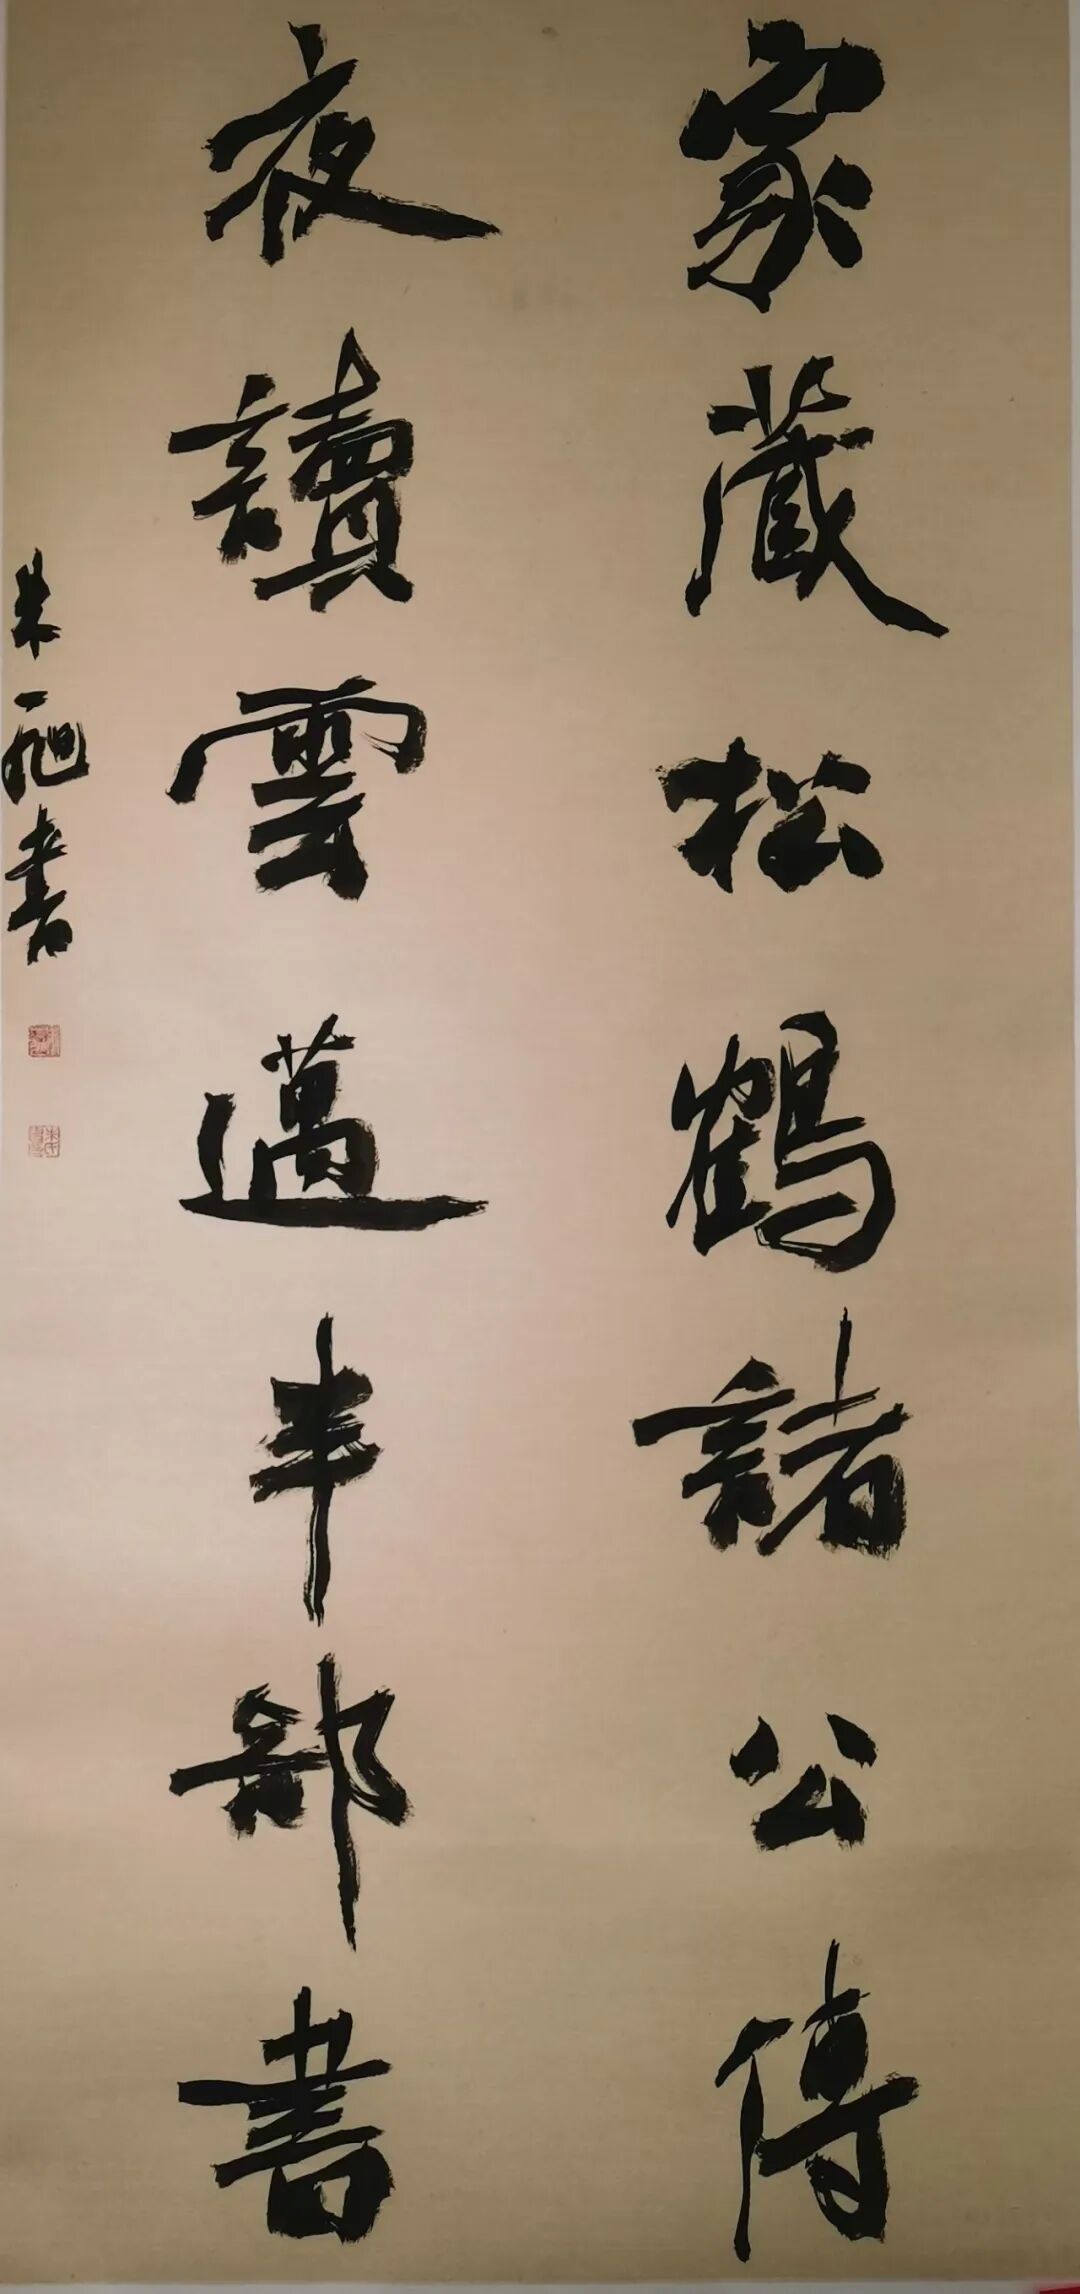 家藏松鶴諸公傳
夜讀雲邁半部書
朱一旭書